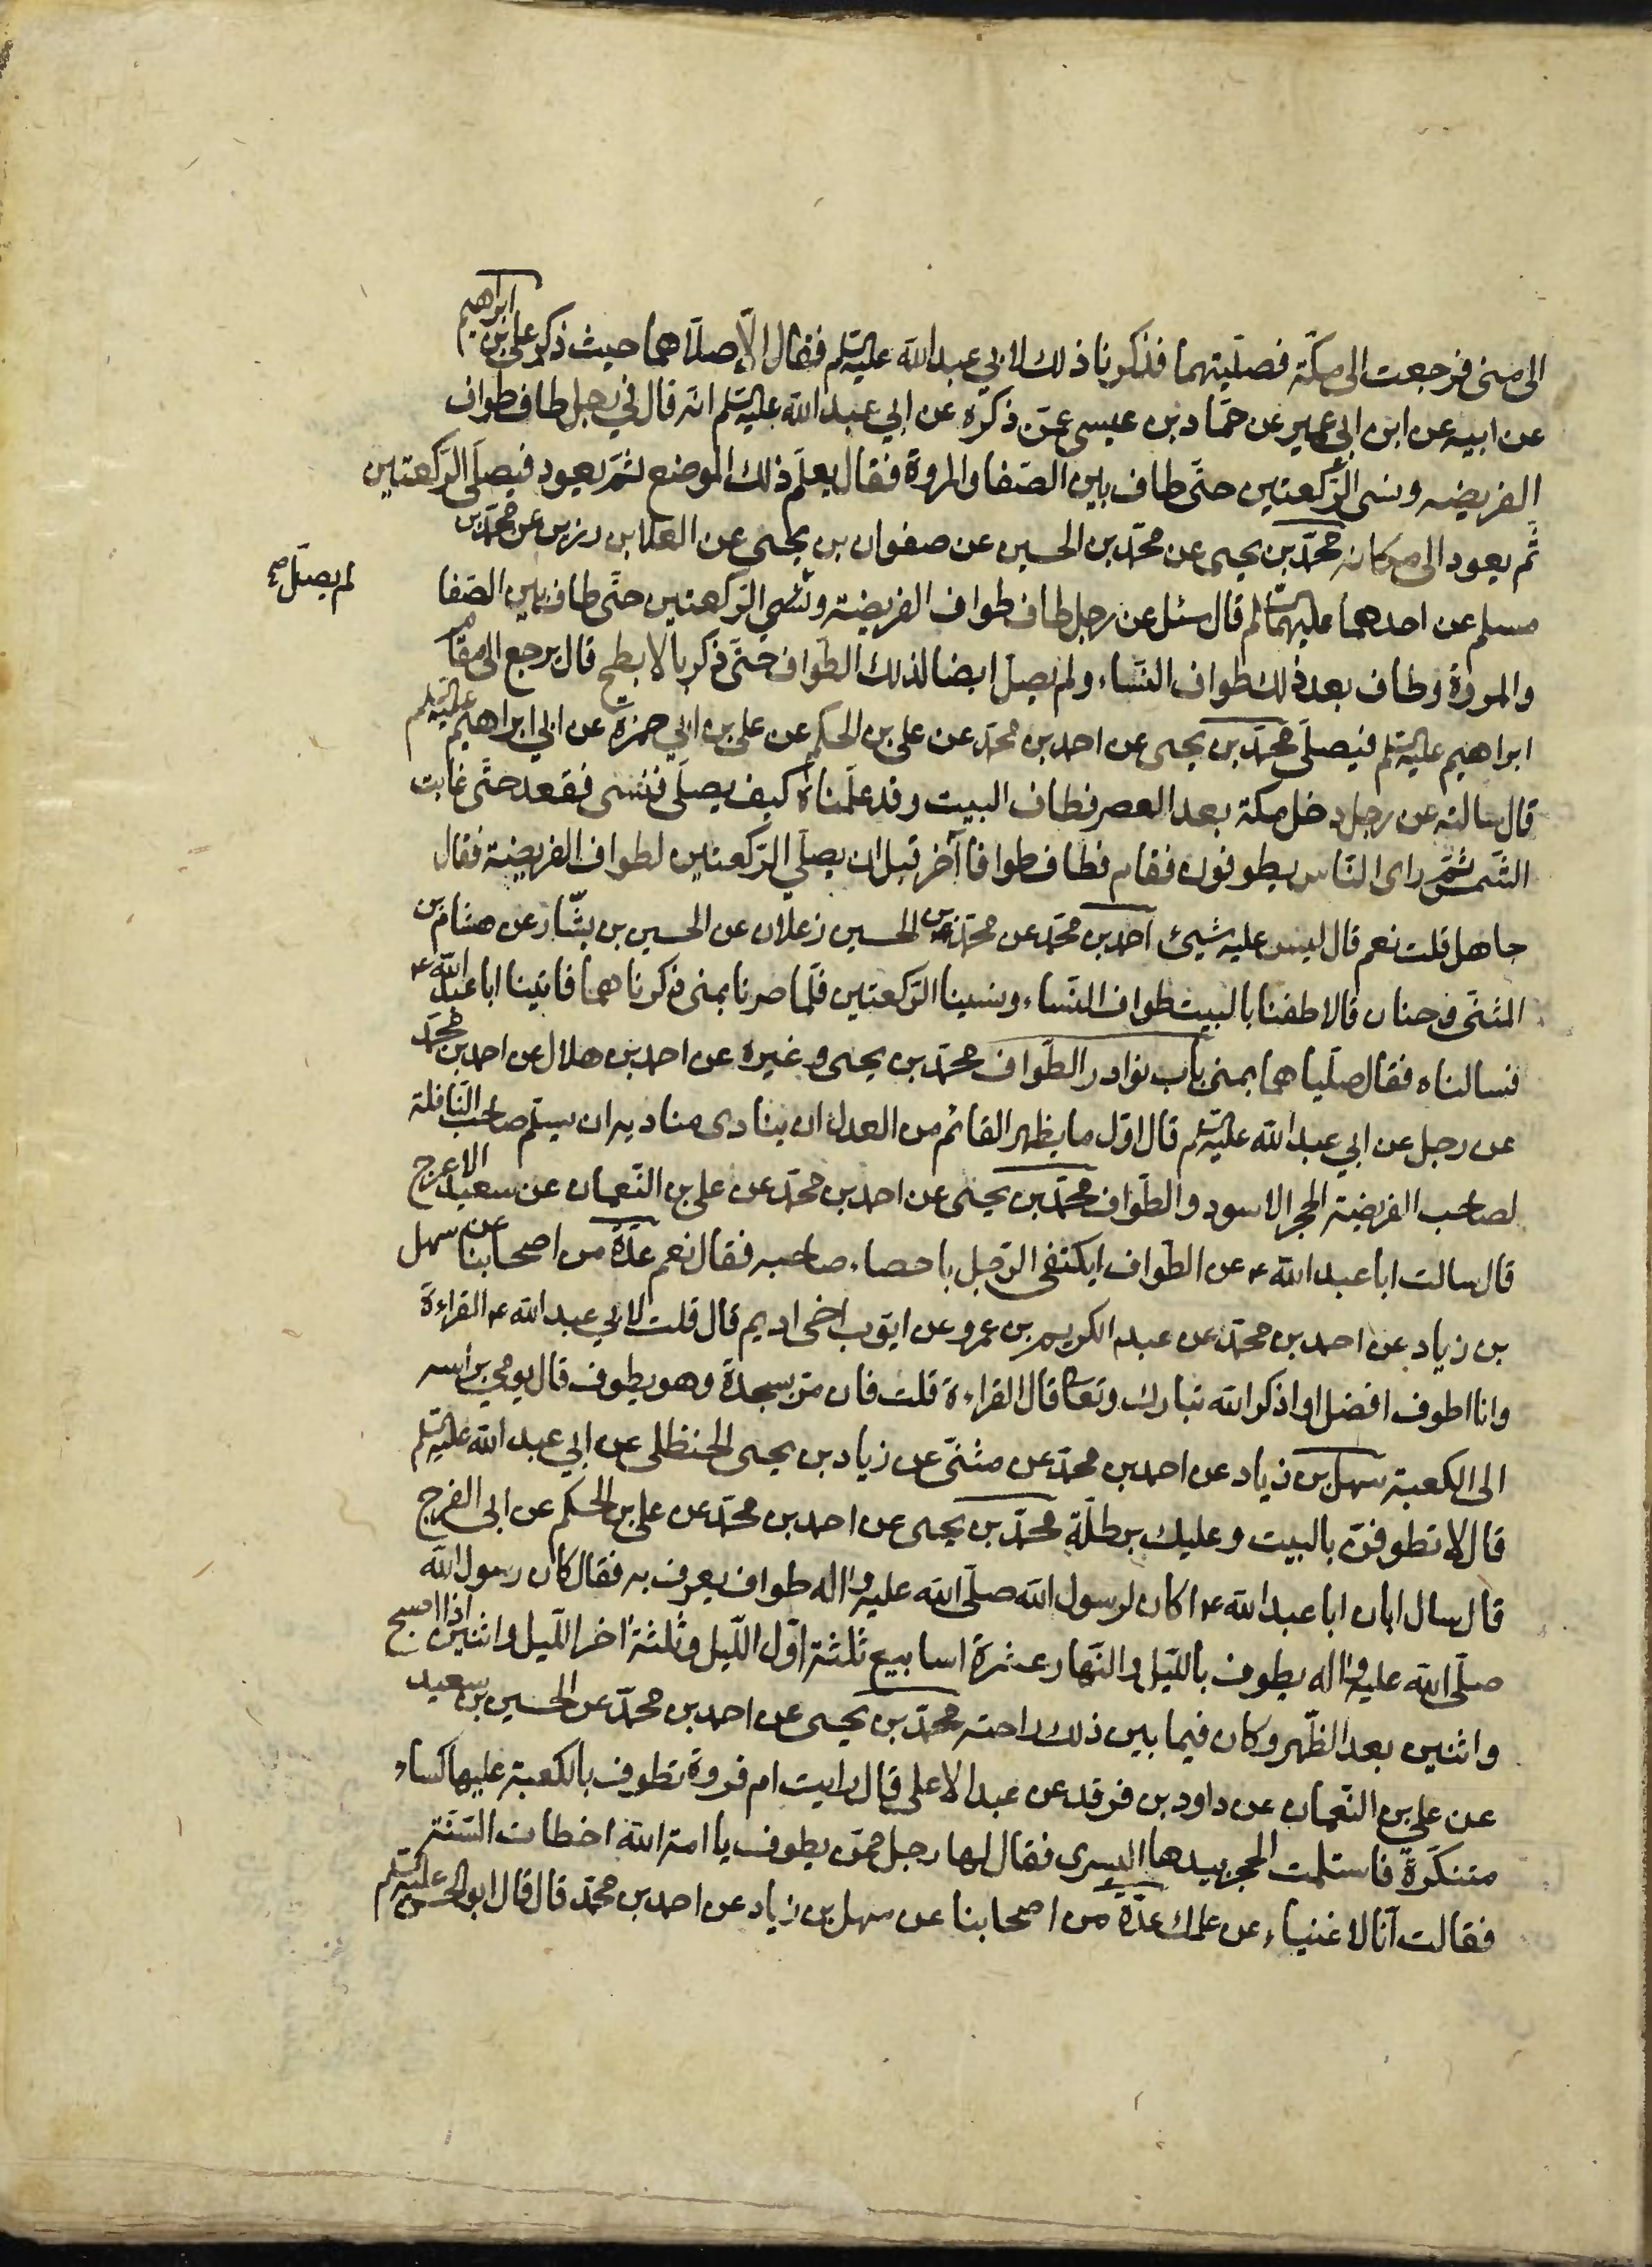 الى منى فرجعت الى مكّة فصلّيتهما فذكرنا ذلك لابي عبدالله عليه السلم فقال الّا صلّاهما حيث ذكر علي بن ابراهيم
عن ابيه عن ابن ابي عمير عن حمّاد بن عيسى عمّن ذكره عن ابي عبدالله عليه السلم انه قال في رجل طاف طواف
الفريضه ونسى الرّكعتين حتّى طاف بين الصّفا والمروة فقال يعلم ذلك الموضع ثمّ يعود فيصلّى الرّكعتين
ثمّ يعود الى مكانه محمّد بن يحيى عن محمّد بن الحسين عن صفوان بن يحيى عن العلا بن رزين عن محمّد بن
مسلم عن احدهما عليهما السلم قال سئل عن رجل طاف طواف الفريضة ونسي الرّكعتين حتّى طاف بين الصّفا
لم يصلّ صح
والمروة وطاف بعد ذلك طواف النّساء ولم يصلّ ايضا لذلك الطّواف حتّى ذكر بالابطح قال يرجع الى مقام
ابراهيم عليه السلم فيصلّى محمّد بن يحيى عن احمد بن محمّد عن علي بن الحكم عن علي بن ابي حمزة عن ابي ابراهيم عليه السلم
قال سالته عن رجل دخل مكة بعد العصر فطاف البيت وقد علّمناه كيف يصلّى فنسى فقعد حتّى غابت
الشّمس ثمّ راى النّاس يطوفون فقام فطاف طوافا آخر قبل ان يصلّي الرّكعتين لطواف الفريضة فقال
جاهل قلت نعم قال ليس عليه شيئ احمد بن محمّد عن محمّد بن الحسين زعلان عن الحسين بن بشّار عن هشام بن
المثنّى وحنان قالا طفنا بالبيت طواف النّساء ونسينا الرّكعتين فلمّا صرنا بمنى ذكرناهما فاتينا ابا عبدالله ع
فسالناه فقال صلّياهما بمنى باب نوادر الطّواف محمّد بن يحيى وغيره عن احمد بن هلال عن احمد بن محمّد
عن رجل عن ابي عبدالله عليه السلم قال اوّل ما يظهر القائم من العدل ان ينادى مناديه ان يسلّم صاحب النّافلة
لصاحب الفريضة الحجر الاسود والطّواف محمّد بن يحيى عن احمد بن محمّد عن علي بن النّعمان عن سعيد الاعرج
قال سالت ابا عبدالله ع عن الطّواف ايكتفى الرّجل باحصاء صاحبه فقال نعم عدّة من اصحابنا عن سهل
بن زياد عن احمد بن محمّد عن عبد الكريم بن عمرو عن ايّوب اخي اديم قال قلت لابي عبدالله ع القراءة
وانا اطوف افضل او اذكر الله تبارك وتعا قال القراءة قلت فان مرّ بسجدة وهو يطوف قال يومي براسه
الى الكعبة سهل بن زياد عن احمد بن محمّد عن مثنّى عن زياد بن يحيى الحنظلي عن ابي عبدالله عليه السلم
قال لا تطوفنّ بالبيت وعليك برطلّة محمّد بن يحيى عن احمد بن محمّد عن علي بن الحكم عن ابي الفرج
قال سال ابان ابا عبدالله ع اكان لرسول الله صلّى الله عليه واله طواف يعرف به فقال كان رسول الله
صلّى الله عليه واله يطوف باللّيل والنّهار عشرة اسابيع ثلثة اوّل اللّيل وثلثة اخر اللّيل واثنين اذا اصبح
واثنين بعد الظّهر وكان فيما بين ذلك راحته محمّد بن يحيى عن احمد بن محمّد عن الحسين بن سعيد
عن علي بن النّعمان عن داود بن فرقد عن عبد الاعلى قال رايت ام فروة تطوف بالكعبة عليها كساء
متنكّرة فاستلمت الحجر بيدها اليسرى فقال لها رجل ممّن يطوف يا امة الله اخطات السّنّة
فقالت انّا لاغنياء عن علمك عدّة من اصحابنا عن سهل بن زياد عن احمد بن محمّد قال قال ابو الحسن عليه السلم